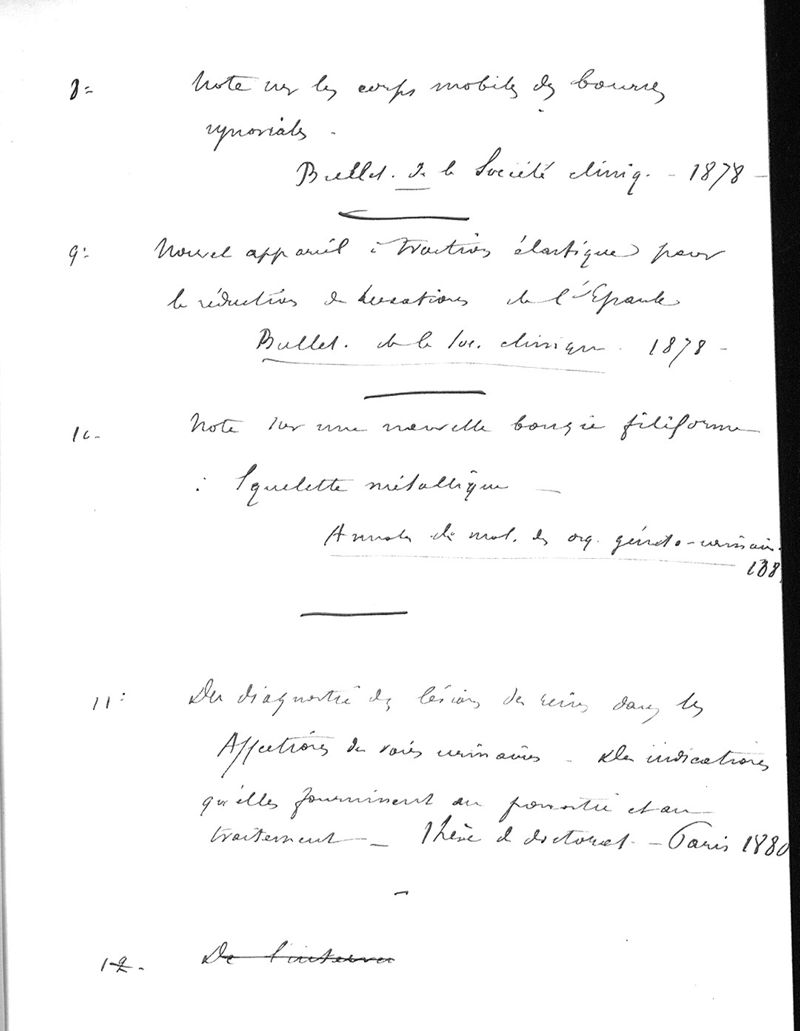 8:= Note sur les corps mobiles des bourses
synoviales.
Bullet. de la Société cliniq. - 1878 -
9:= Nouvel appareil à traction élastique pour
la réduction de luxations de l'Epaule
Bullet. de la Soc. clinique. 1878 -
10.- Note sur une nouvelle bougie filiforme
à Squelette métallique -
Annales de mal. des org. génito-urinair.
188
11:= Du diagnostic des lésions des reins dans les
Affections des voies urinaires. Des indications
qu'elles fournissent au pronostic et au
traitement - Thèse de doctorat. - Paris 1880
12.- De l'interven